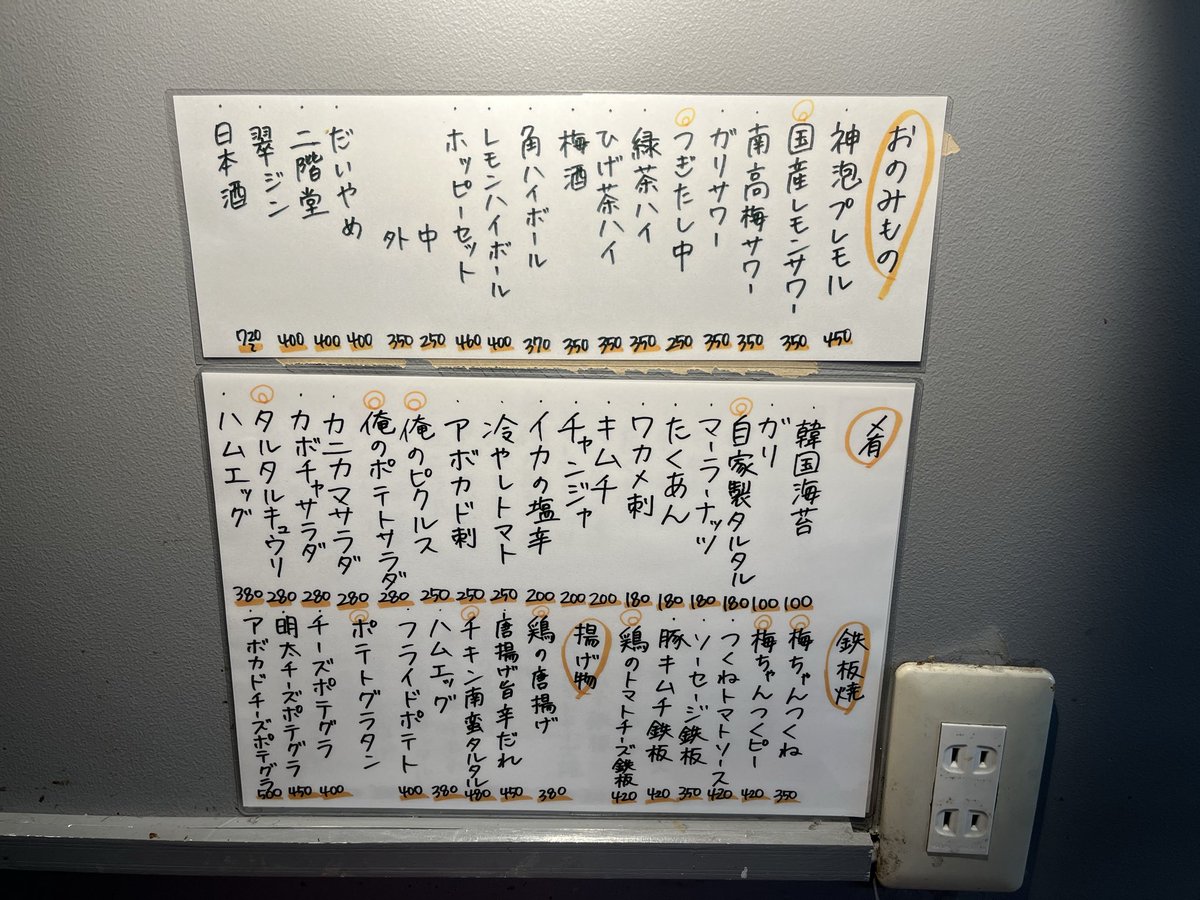 おのみもの
神泡プレモル 450
国産レモンサワー 350
南高梅サワー 350
ガリサワー 350
つぎたし中 250
緑茶ハイ 350
ひげ茶ハイ 350
梅酒 350
角ハイボール 370
レモンハイボール 400
ホッピーセット 460
中 250
外 350
だいやめ 400
二階堂 400
翠ジン 400
日本酒 720〜
肴
韓国海苔 100
ガリ 100
自家製タルタル 180
マーラーナッツ 180
たくあん 180
ワカメ刺 180
キムチ 200
チャンジャ 200
イカの塩辛 200
冷やしトマト 250
アボカド刺 250
俺のピクルス 250
俺のポテトサラダ 280
カニカマサラダ 280
カボチャサラダ 280
タルタルキュウリ 280
ハムエッグ 380
鉄板焼
梅ちゃんつくね 350
梅ちゃんつくピー 420
つくねトマトソース 420
ソーセージ鉄板 350
豚キムチ鉄板 420
鶏のトマトチーズ鉄板 420
揚げ物
鶏の唐揚げ 380
唐揚げ旨辛だれ 450
チキン南蛮タルタル 480
ハムエッグ 380
フライドポテト 400
ポテトグラタン
チーズポテグラ 400
明太チーズポテグラ 450
アボカドチーズポテグラ 500